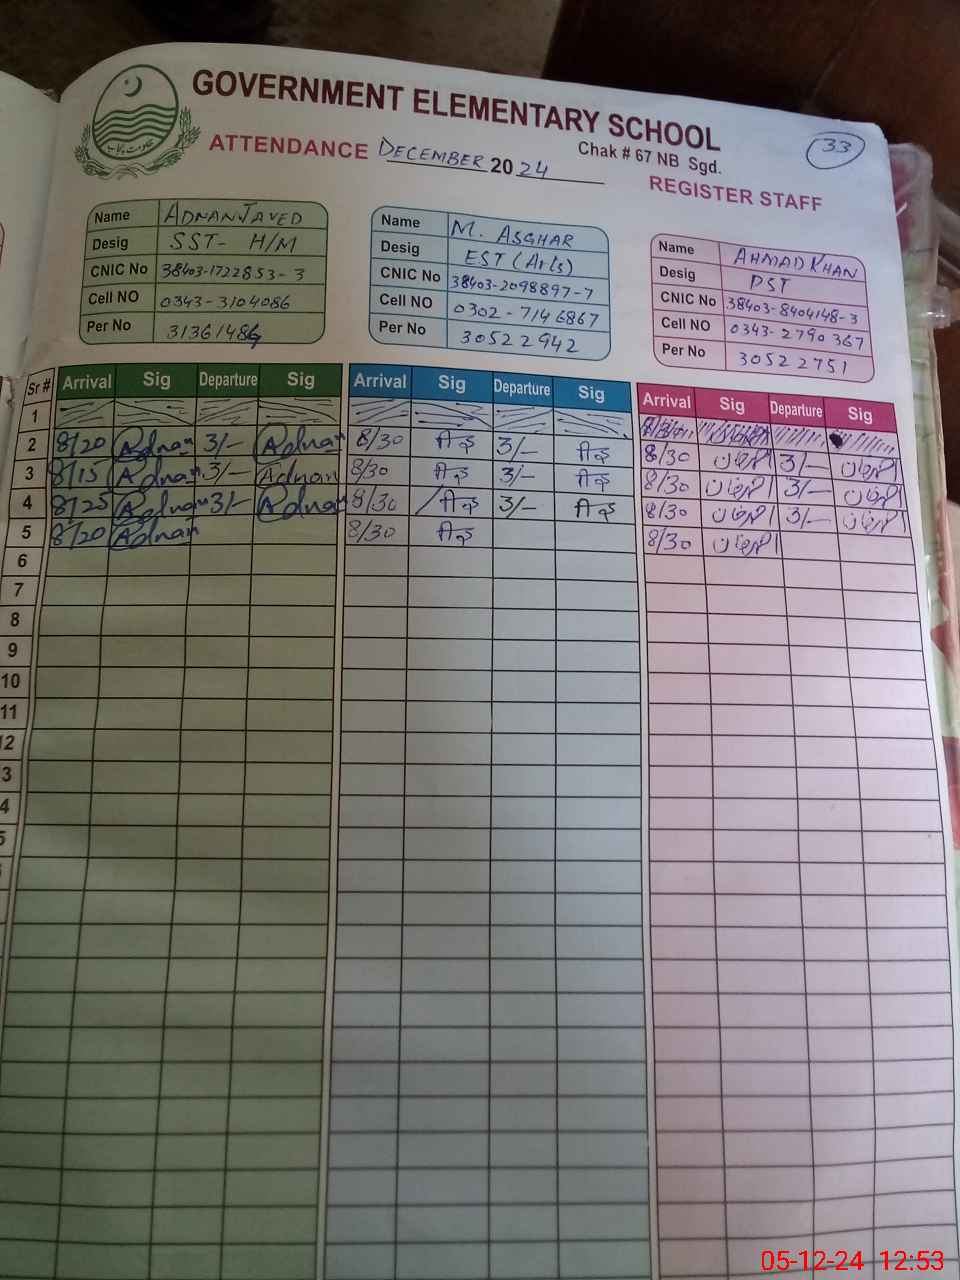 GOVERNMENT ELEMENTARY SCHOOL
Chak # 67 NB Sgd.
33
ATTENDANCE DECEMBER 2024
REGISTER STAFF
حکومت پنجاب
Name ADNAN JAVED
Desig SST- H/M
CNIC No 38403-1722853-3
Cell NO 0343-3104086
Per No 31361486
Name M. ASGHAR
Desig EST (Arts)
CNIC No 38403-2098897-7
Cell NO 0302-7146867
Per No 30522942
Name AHMAD KHAN
Desig PST
CNIC No 38403-8404148-3
Cell NO 0343-2790367
Per No 30522751
Sr # Arrival Sig Departure Sig Arrival Sig Departure Sig Arrival Sig Departure Sig
1
2 8/20 Adnan 3/- Adnan 8/30 3/- 8/30 احمد خان 3/- احمد خان
3 8/15 Adnan 3/- Adnan 8/30 3/- 8/30 احمد خان 3/- احمد خان
4 8/25 Adnan 3/- Adnan 8/30 3/- 8/30 احمد خان 3/- احمد خان
5 8/20 Adnan 8/30 8/30 احمد خان
6
7
8
9
10
11
12
3
4
5
05-12-24 12:53